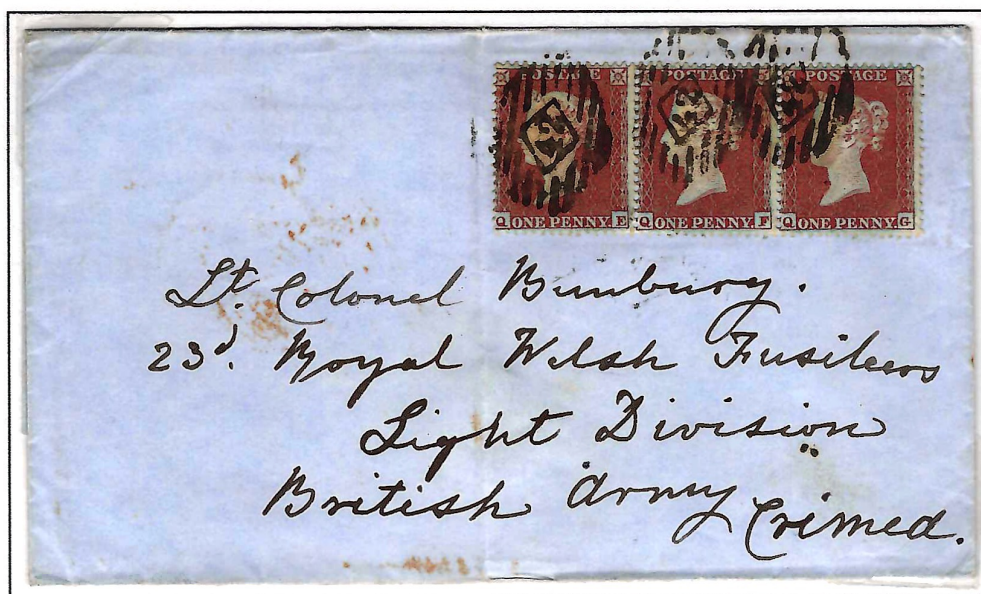 POSTAGE POSTAGE POSTAGE
Q ONE PENNY. E Q ONE PENNY. F Q ONE PENNY. G
Lt. Colonel Bunbury.
23d. Royal Welsh Fusileers
Light Division
British Army Crimea.